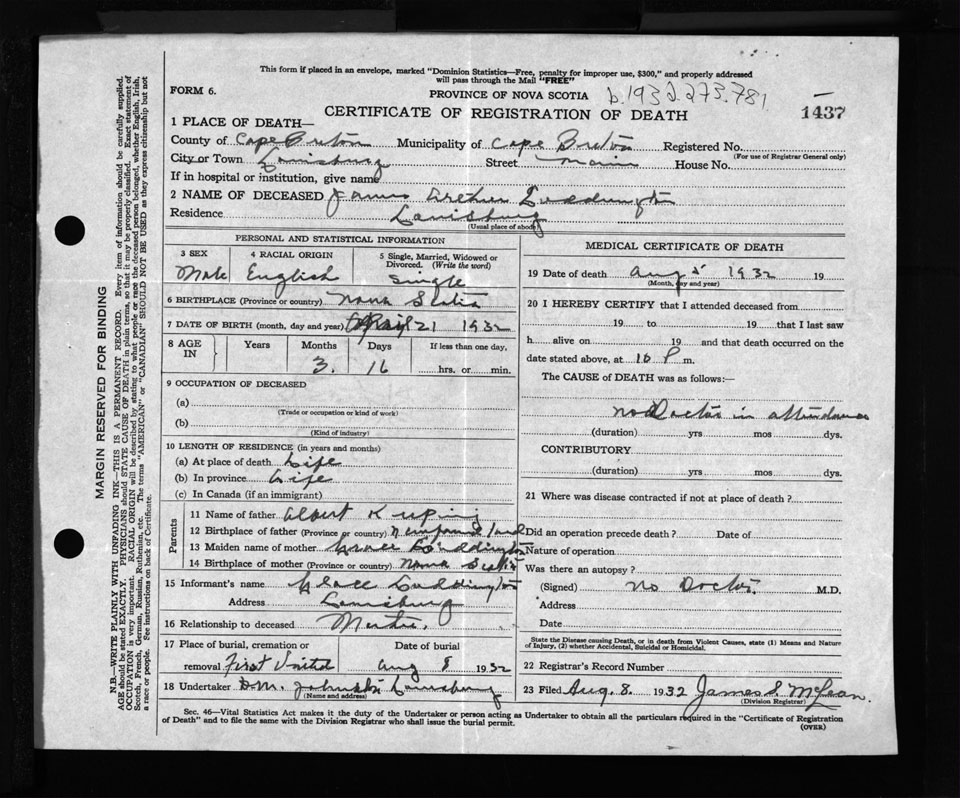 This form if placed in an envelope, marked "Dominion Statistics—Free, penalty for improper use, $300," and properly addressed
will pass through the Mail "FREE"
FORM 6.
PROVINCE OF NOVA SCOTIA b.1932.273.781
CERTIFICATE OF REGISTRATION OF DEATH
1437
1 PLACE OF DEATH—
County of Cape Breton Municipality of Cape Breton Registered No.
(For use of Registrar General only)
City or Town Louisburg Street Main House No.
If in hospital or institution, give name
2 NAME OF DECEASED James Arthur Luddington
Residence Louisburg
(Usual place of abode)
PERSONAL AND STATISTICAL INFORMATION
3 SEX 4 RACIAL ORIGIN 5 Single, Married, Widowed or Divorced. (Write the word)
Male English Single
6 BIRTHPLACE (Province or country) Nova Scotia
7 DATE OF BIRTH (month, day and year) April 21 1932
8 AGE IN Years Months Days If less than one day,
3. 16 hrs. or min.
9 OCCUPATION OF DECEASED
(a)
(Trade or occupation or kind of work)
(b)
(Kind of industry)
10 LENGTH OF RESIDENCE (in years and months)
(a) At place of death Life
(b) In province Life
(c) In Canada (if an immigrant)
Parents
11 Name of father Albert
12 Birthplace of father (Province or country) Newfoundland
13 Maiden name of mother Grace Luddington
14 Birthplace of mother (Province or country) Nova Scotia
15 Informant's name Grace Luddington
Address Louisburg
16 Relationship to deceased Mother.
17 Place of burial, cremation or Date of burial
removal First United Aug 8 1932
18 Undertaker D.M. Johnston Louisburg
(Name and address)
MEDICAL CERTIFICATE OF DEATH
19 Date of death Aug 5 1932 19
(Month, day and year)
20 I HEREBY CERTIFY that I attended deceased from
19 to 19 that I last saw
h alive on 19 and that death occurred on the
date stated above, at 10 P m.
The CAUSE of DEATH was as follows:—
No Doctor in attendance
(duration) yrs mos dys.
CONTRIBUTORY
(duration) yrs mos dys.
21 Where was disease contracted if not at place of death?
Did an operation precede death? Date of
Nature of operation
Was there an autopsy?
(Signed) No Doctor. M.D.
Address
Date
State the Disease causing Death, or in death from Violent Causes, state (1) Means and Nature
of Injury, (2) whether Accidental, Suicidal or Homicidal.
22 Registrar's Record Number
23 Filed Aug. 8. 1932 James S. McLean.
(Division Registrar)
Sec. 46—Vital Statistics Act makes it the duty of the Undertaker or person acting as Undertaker to obtain all the particulars required in the "Certificate of Registration
of Death" and to file the same with the Division Registrar who shall issue the burial permit.
(OVER)
MARGIN RESERVED FOR BINDING
N.B.—WRITE PLAINLY WITH UNFADING INK—THIS IS A PERMANENT RECORD. Every item of information should be carefully supplied.
AGE should be stated EXACTLY. PHYSICIANS should STATE CAUSE OF DEATH in plain terms, so that it may be properly classified. Exact statement of
OCCUPATION is very important. RACIAL ORIGIN will be described by stating to what people or race the deceased person belonged, whether English, Irish,
Scotch, French, German, Russian, Ruthenian, etc. The terms "AMERICAN" or "CANADIAN" SHOULD NOT BE USED as they express citizenship but not
a race or people. See instructions on back of Certificate.